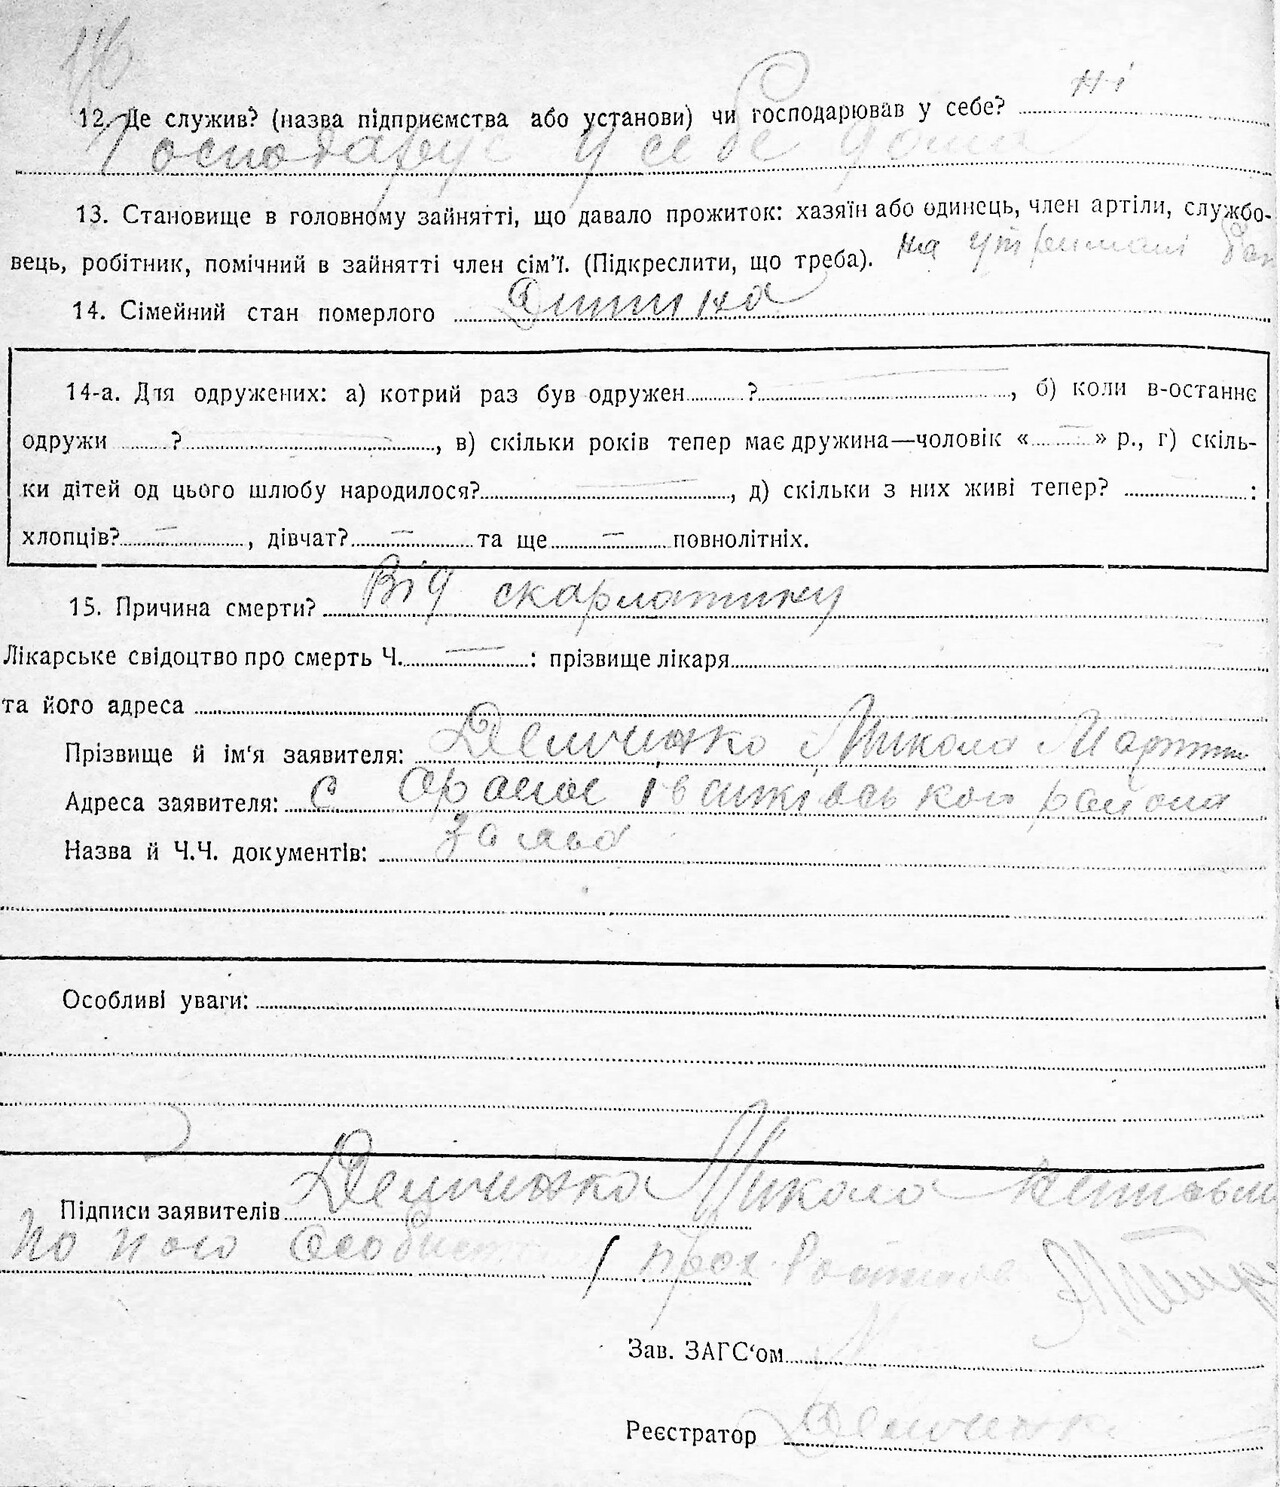 116
12. Де служив? (назва підприємства або установи) чи господарював у себе? ні
Господарує у себе дома
13. Становище в головному зайнятті, що давало прожиток: хазяїн або одинець, член артіли, службо-
вець, робітник, помічний в зайнятті член сім'ї. (Підкреслити, що треба). на утриманні
14. Сімейний стан померлого Дитина
14-а. Для одружених: а) котрий раз був одружен ? , б) коли в-останнє
одружи ? , в) скільки років тепер має дружина—чоловік « — » р., г) скіль-
ки дітей од цього шлюбу народилося? , д) скільки з них живі тепер? :
хлопців? — , дівчат? — та ще — повнолітніх.
15. Причина смерти? Від скарлатини
Лікарське свідоцтво про смерть Ч. — : прізвище лікаря
та його адреса
Прізвище й ім'я заявителя: Демченко Микола
Адреса заявителя: с района
Назва й Ч.Ч. документів: заява
Особливі уваги:
Підписи заявителів Демченко Микола
особист
Зав. ЗАГС'ом
Реєстратор Демченко